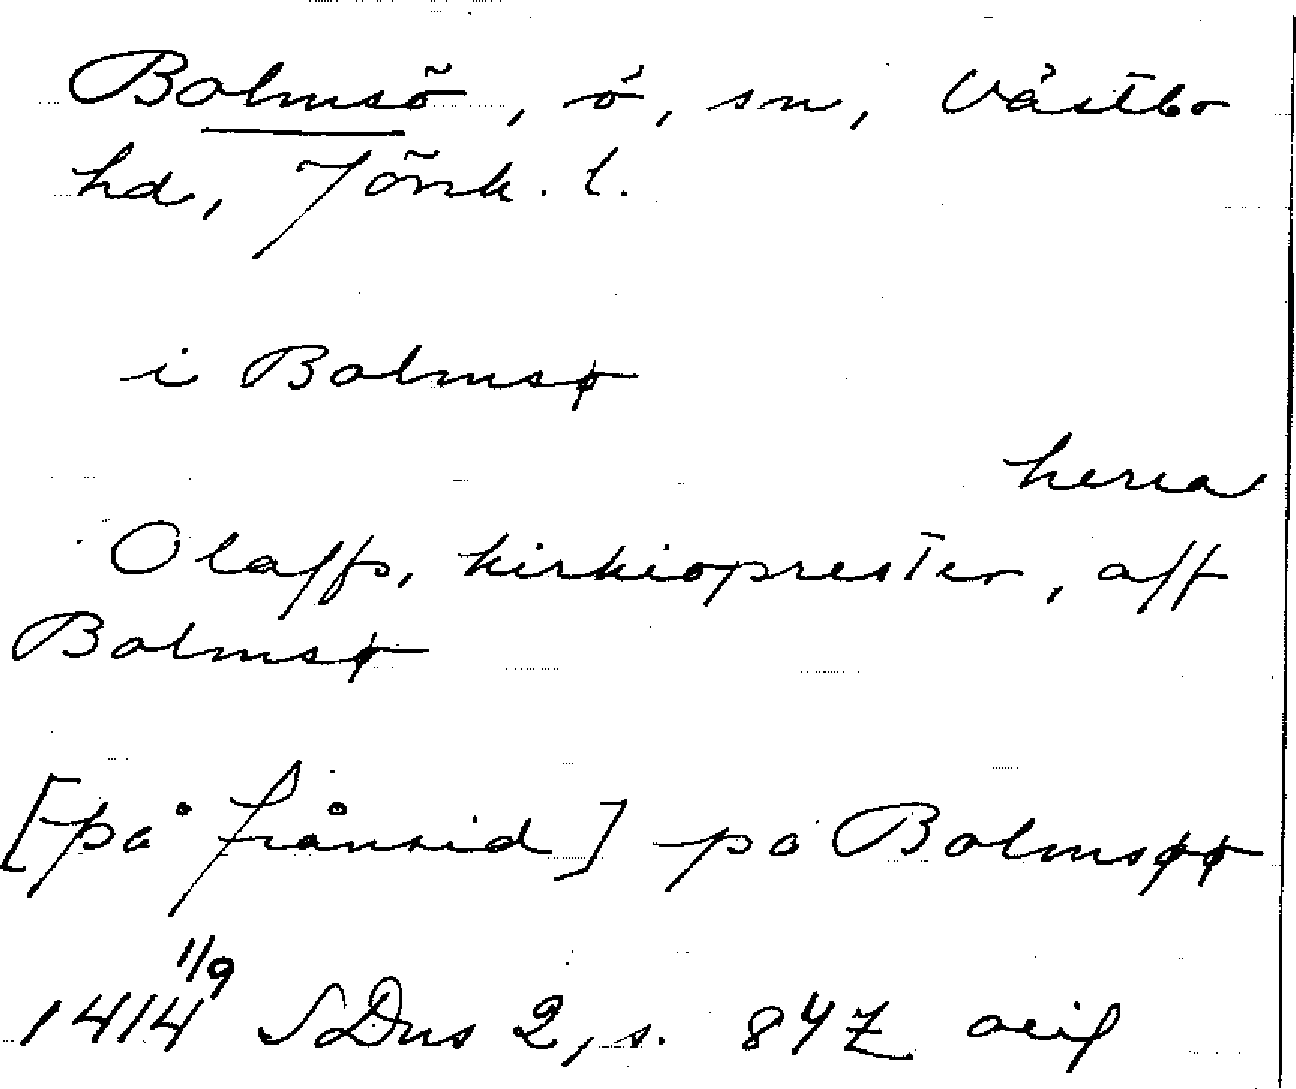 Bolmsö, ö, sn, Västbo
hd, Jönk. l.
i Bolmsø
herra
Olaffs, kirkioprester, aff
Bolmsø
[på frånsid] pa Bolmsøø
1414 1/9 SDns 2, s. 842 orig